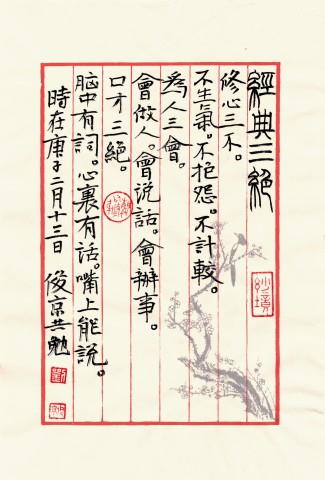 經典三絕
修心三不。
不生氣。不抱怨。不計較。
為人三會。
會做人。會说話。會辦事。
口才三絕。
腦中有詞。心裏有話。嘴上能説。
時在庚子二月十三日 俊京共勉
妙境